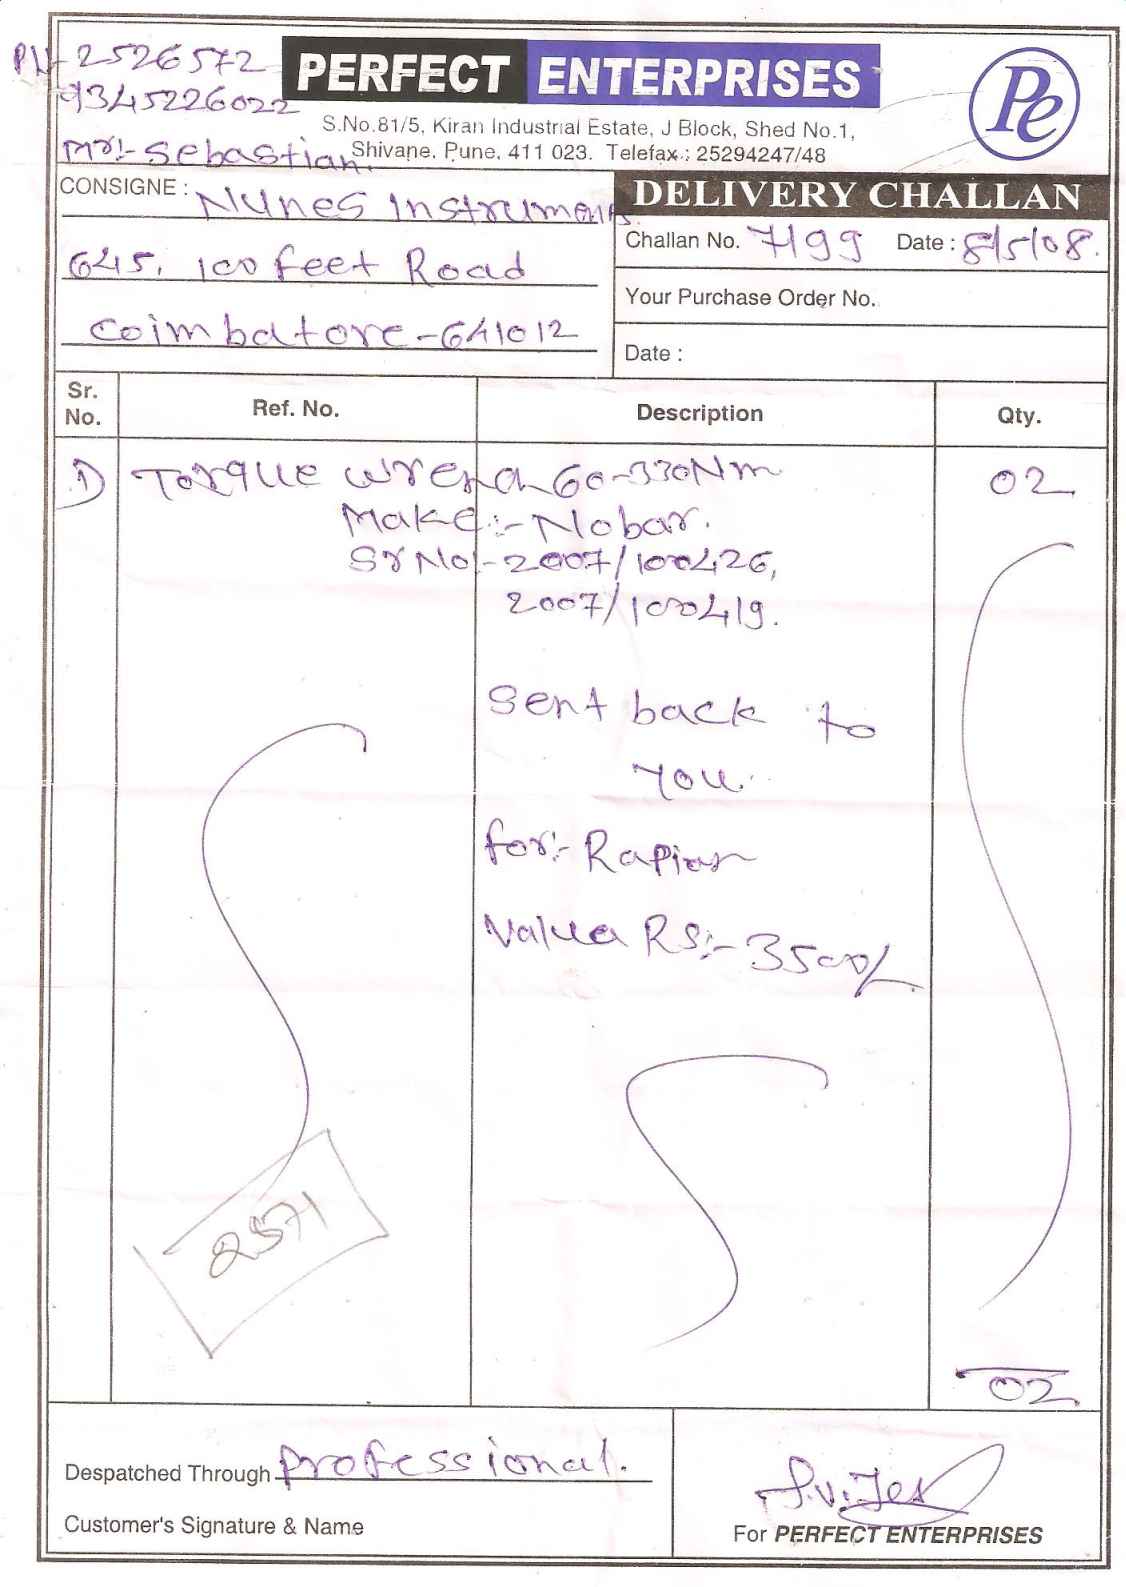 PN- 2526572
9345226022
Mr:- Sebastian.
PERFECT ENTERPRISES
Pe
S.No.81/5, Kiran Industrial Estate, J Block, Shed No.1,
Shivane, Pune. 411 023. Telefax.: 25294247/48
CONSIGNE : Nunes Instruments.
645, 100 feet Road
Coimbatore-641012
DELIVERY CHALLAN
Challan No. 7199 Date : 8/5/08.
Your Purchase Order No.
Date :
Sr. No. Ref. No. Description Qty.
1) Torque wrench 60-330Nm 02
Make:- Nobar.
Sr No:- 2007/100426,
2007/100419.
Sent back to
you.
for:- Rapiar
Value Rs:- 3500/-
2571
02
Despatched Through Professional.
Customer's Signature & Name
For PERFECT ENTERPRISES